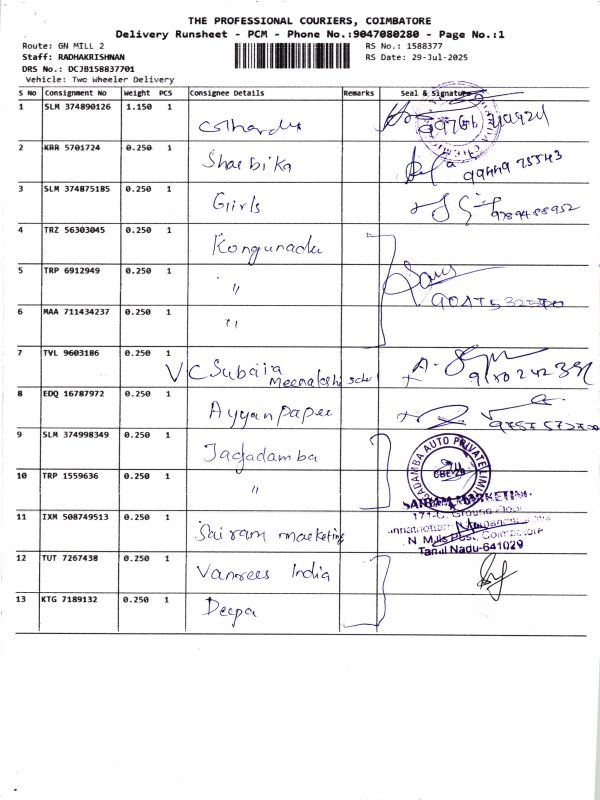 THE PROFESSIONAL COURIERS, COIMBATORE
Delivery Runsheet - PCM - Phone No.:9047080280 - Page No.:1
Route: GN MILL 2
RS No.: 1588377
Staff: RADHAKRISHNAN
RS Date: 29-Jul-2025
DRS No.: DCJB158837701
Vehicle: Two Wheeler Delivery
S No Consignment No Weight PCS Consignee Details Remarks Seal & Signature
1 SLM 374890126 1.150 1
2 KRR 5701724 0.250 1 Sharbika 9944975543
3 SLM 374875185 0.250 1 Girls 9789488952
4 TRZ 56303045 0.250 1 Kongunadu
5 TRP 6912949 0.250 1 "
6 MAA 711434237 0.250 1 "
7 TVL 9603186 0.250 1 V C Subaia
Meenakshi school
8 EDQ 16787972 0.250 1 Ayyan paper
9 SLM 374998349 0.250 1 Jagadamba
JAGADAMBA AUTO PRIVATE LIMITED
10 TRP 1559636 0.250 1 "
SAIRAM MARKETING
171-C, Ground Floor
11 IXM 508749513 0.250 1 Sairam marketing
N. Mills Post, Coimbatore
Tamil Nadu-641029
12 TUT 7267438 0.250 1 Vanrees India
13 KTG 7189132 0.250 1 Deepa